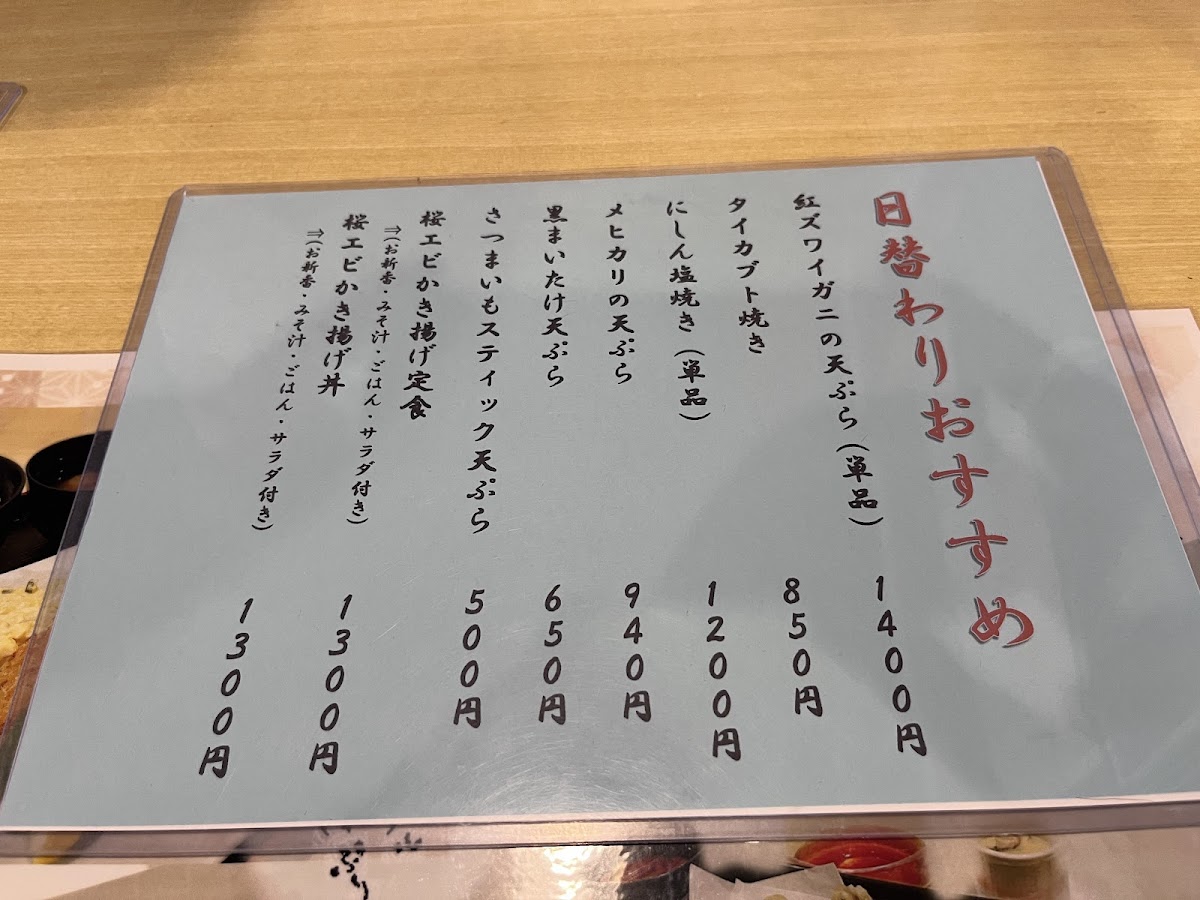 日替わりおすすめ
紅ズワイガニの天ぷら（単品） 1400円
タイカブト焼き 850円
にしん塩焼き（単品） 1200円
メヒカリの天ぷら 940円
黒まいたけ天ぷら 650円
さつまいもスティック天ぷら 500円
桜エビかき揚げ定食 1300円
⇒（お新香・みそ汁・ごはん・サラダ付き）
桜エビかき揚げ丼 1300円
⇒（お新香・みそ汁・ごはん・サラダ付き）